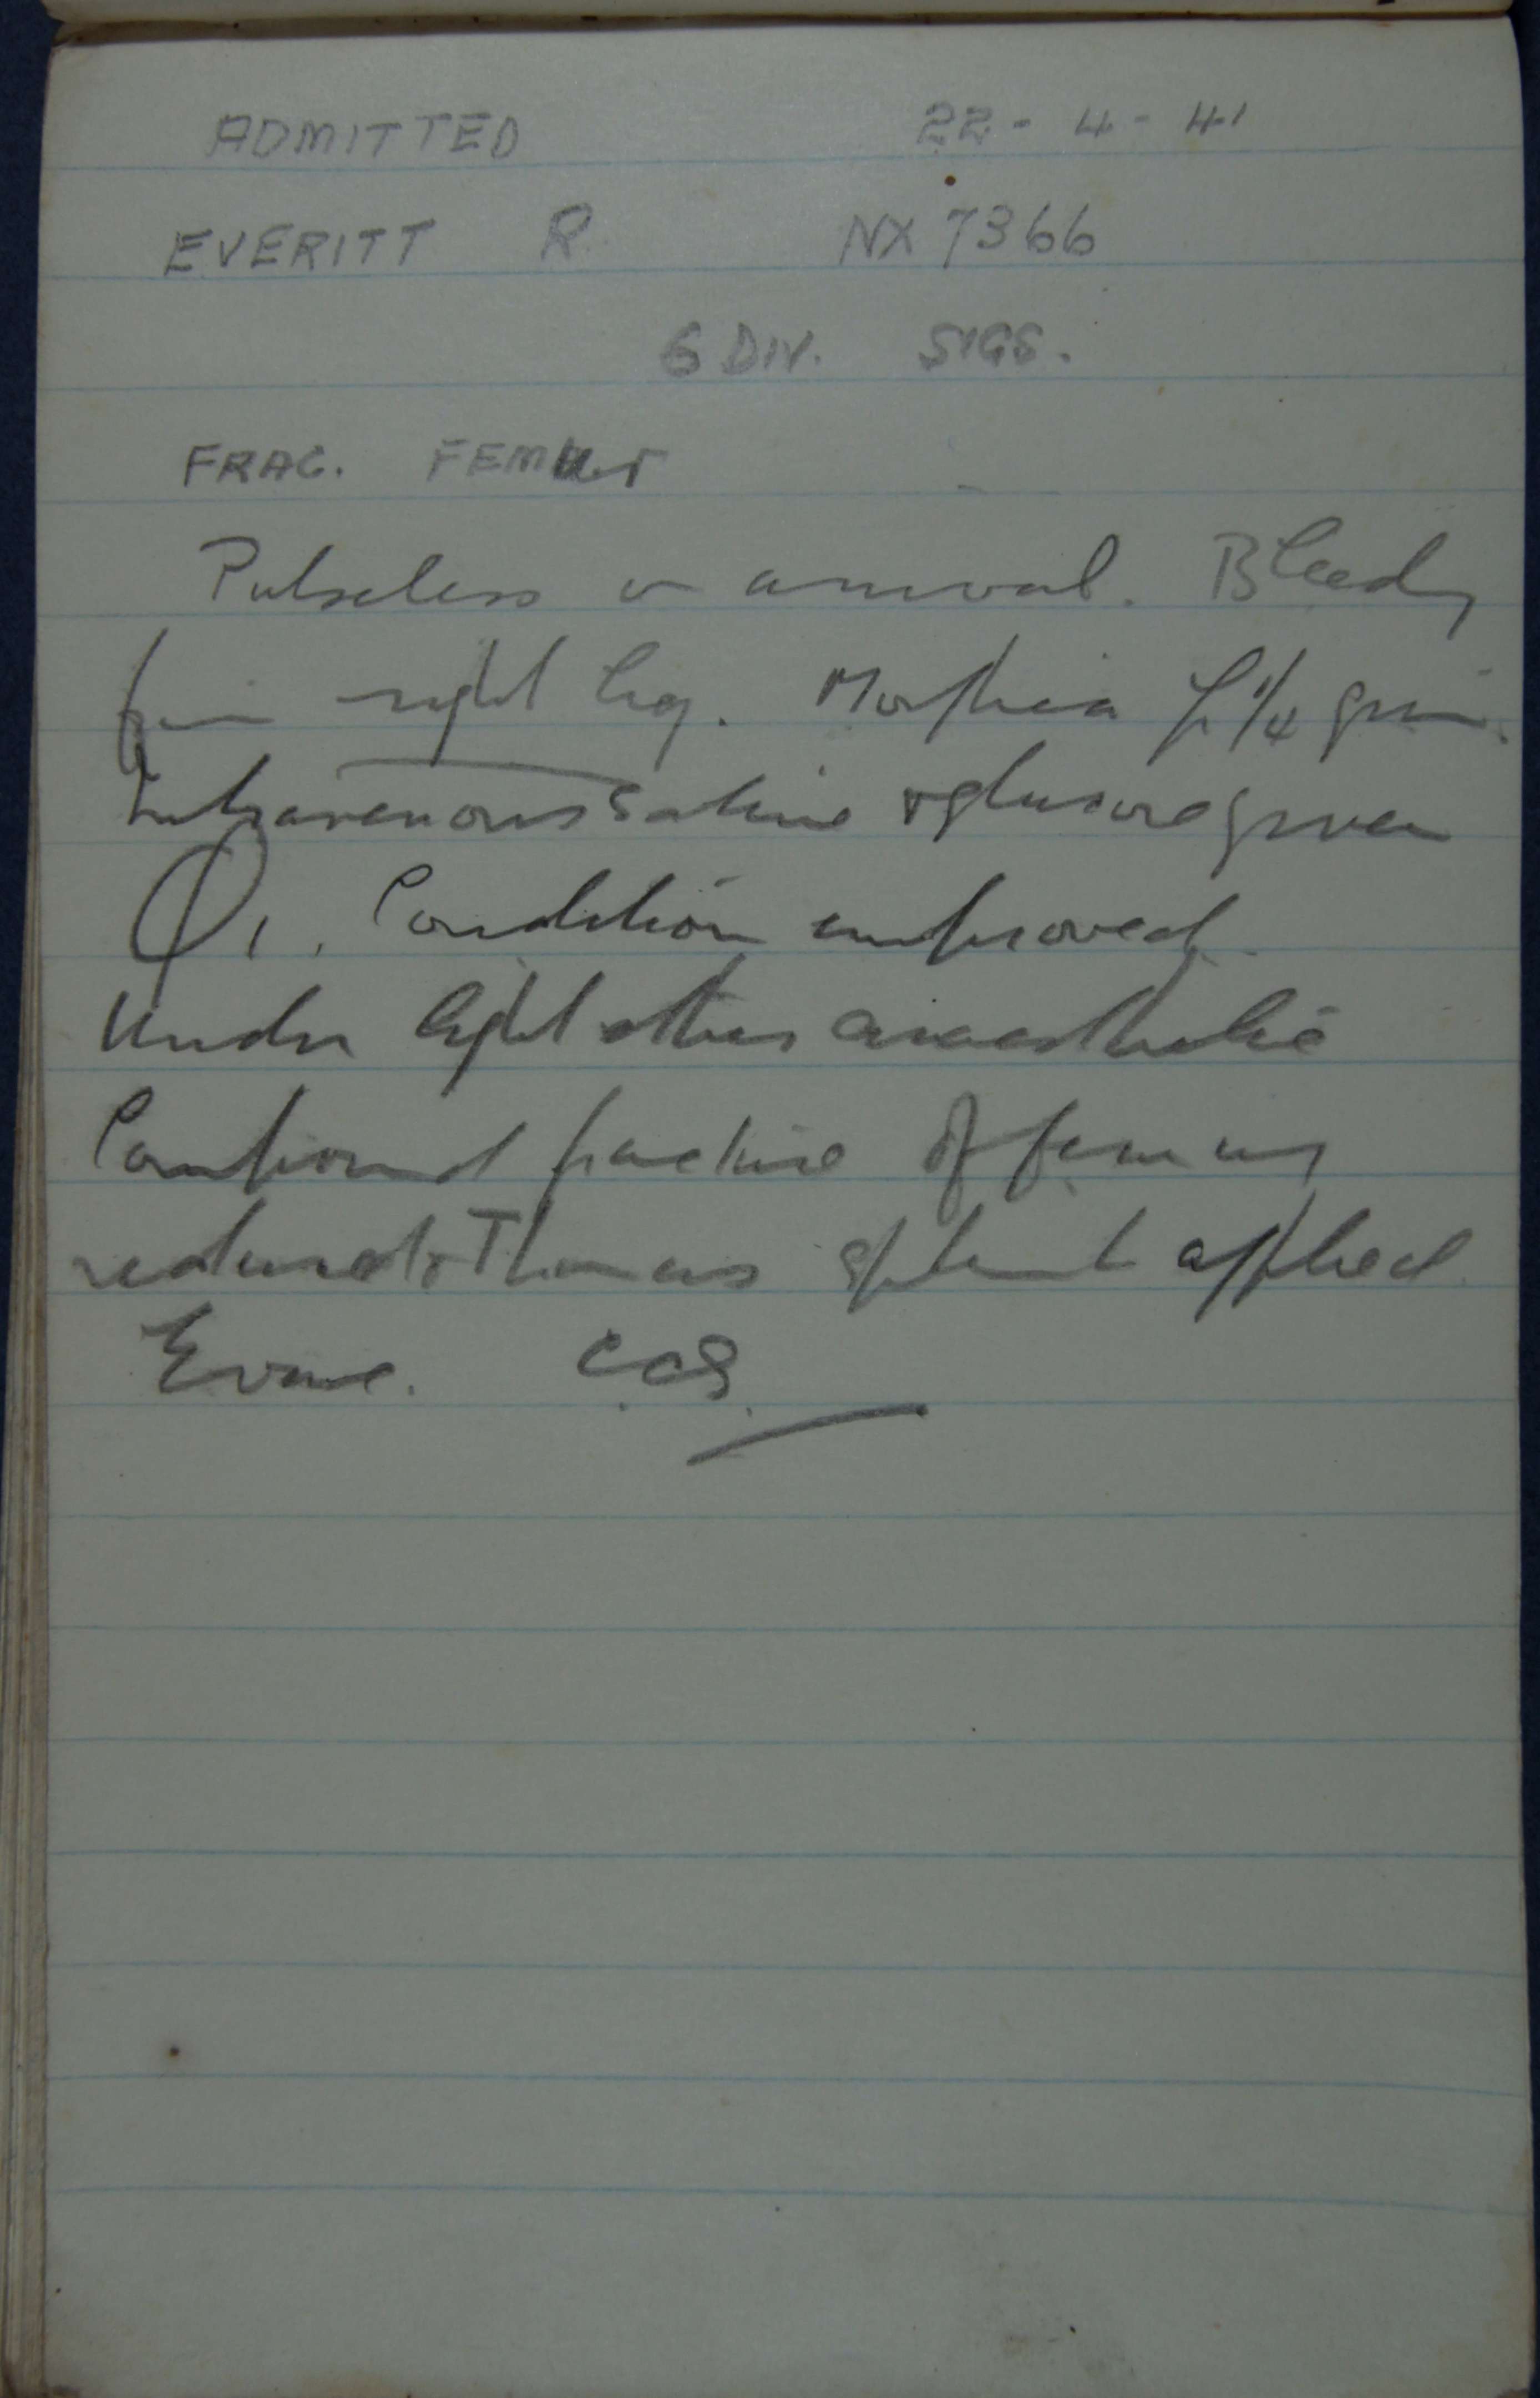 ADMITTED 22-4-41
EVERITT R NX 7366
6 DIV. SIGS.
FRAC. FEMur
Pulseless on arrival. Bleeding
from right leg. Morphia gr 1/4 given.
Intravenous Saline & glucose given
Condition improved
Under light ether anaesthetic
Compound fracture of femur
reduced & Thomas splint applied.
Evac. CCS